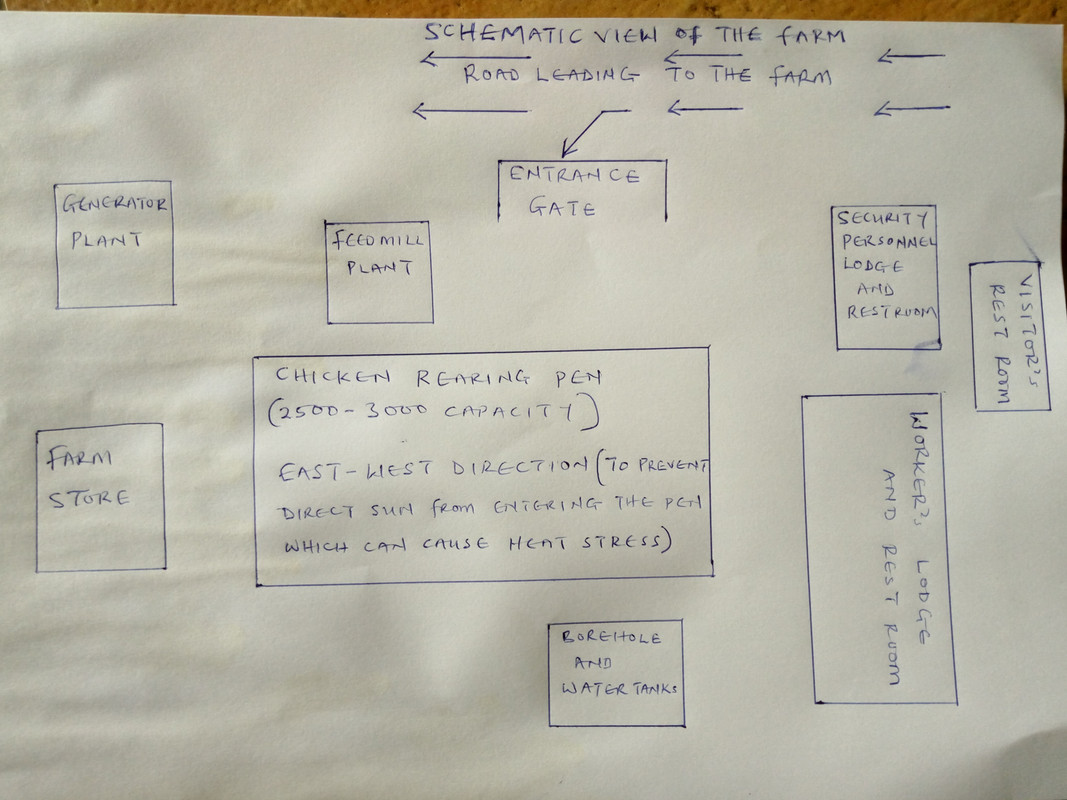 SCHEMATIC VIEW OF THE FARM
ROAD LEADING TO THE FARM
ENTRANCE
GATE
GENERATOR
PLANT
FEEDMILL
PLANT
SECURITY
PERSONNEL
LODGE
AND
RESTROOM
VISITOR'S
REST ROOM
CHICKEN REARING PEN
(2500-3000 CAPACITY)
EAST-WEST DIRECTION (TO PREVENT
DIRECT SUN FROM ENTERING THE PEN
WHICH CAN CAUSE HEAT STRESS)
FARM
STORE
WORKER'S LODGE
AND REST ROOM
BOREHOLE
AND
WATER TANKS